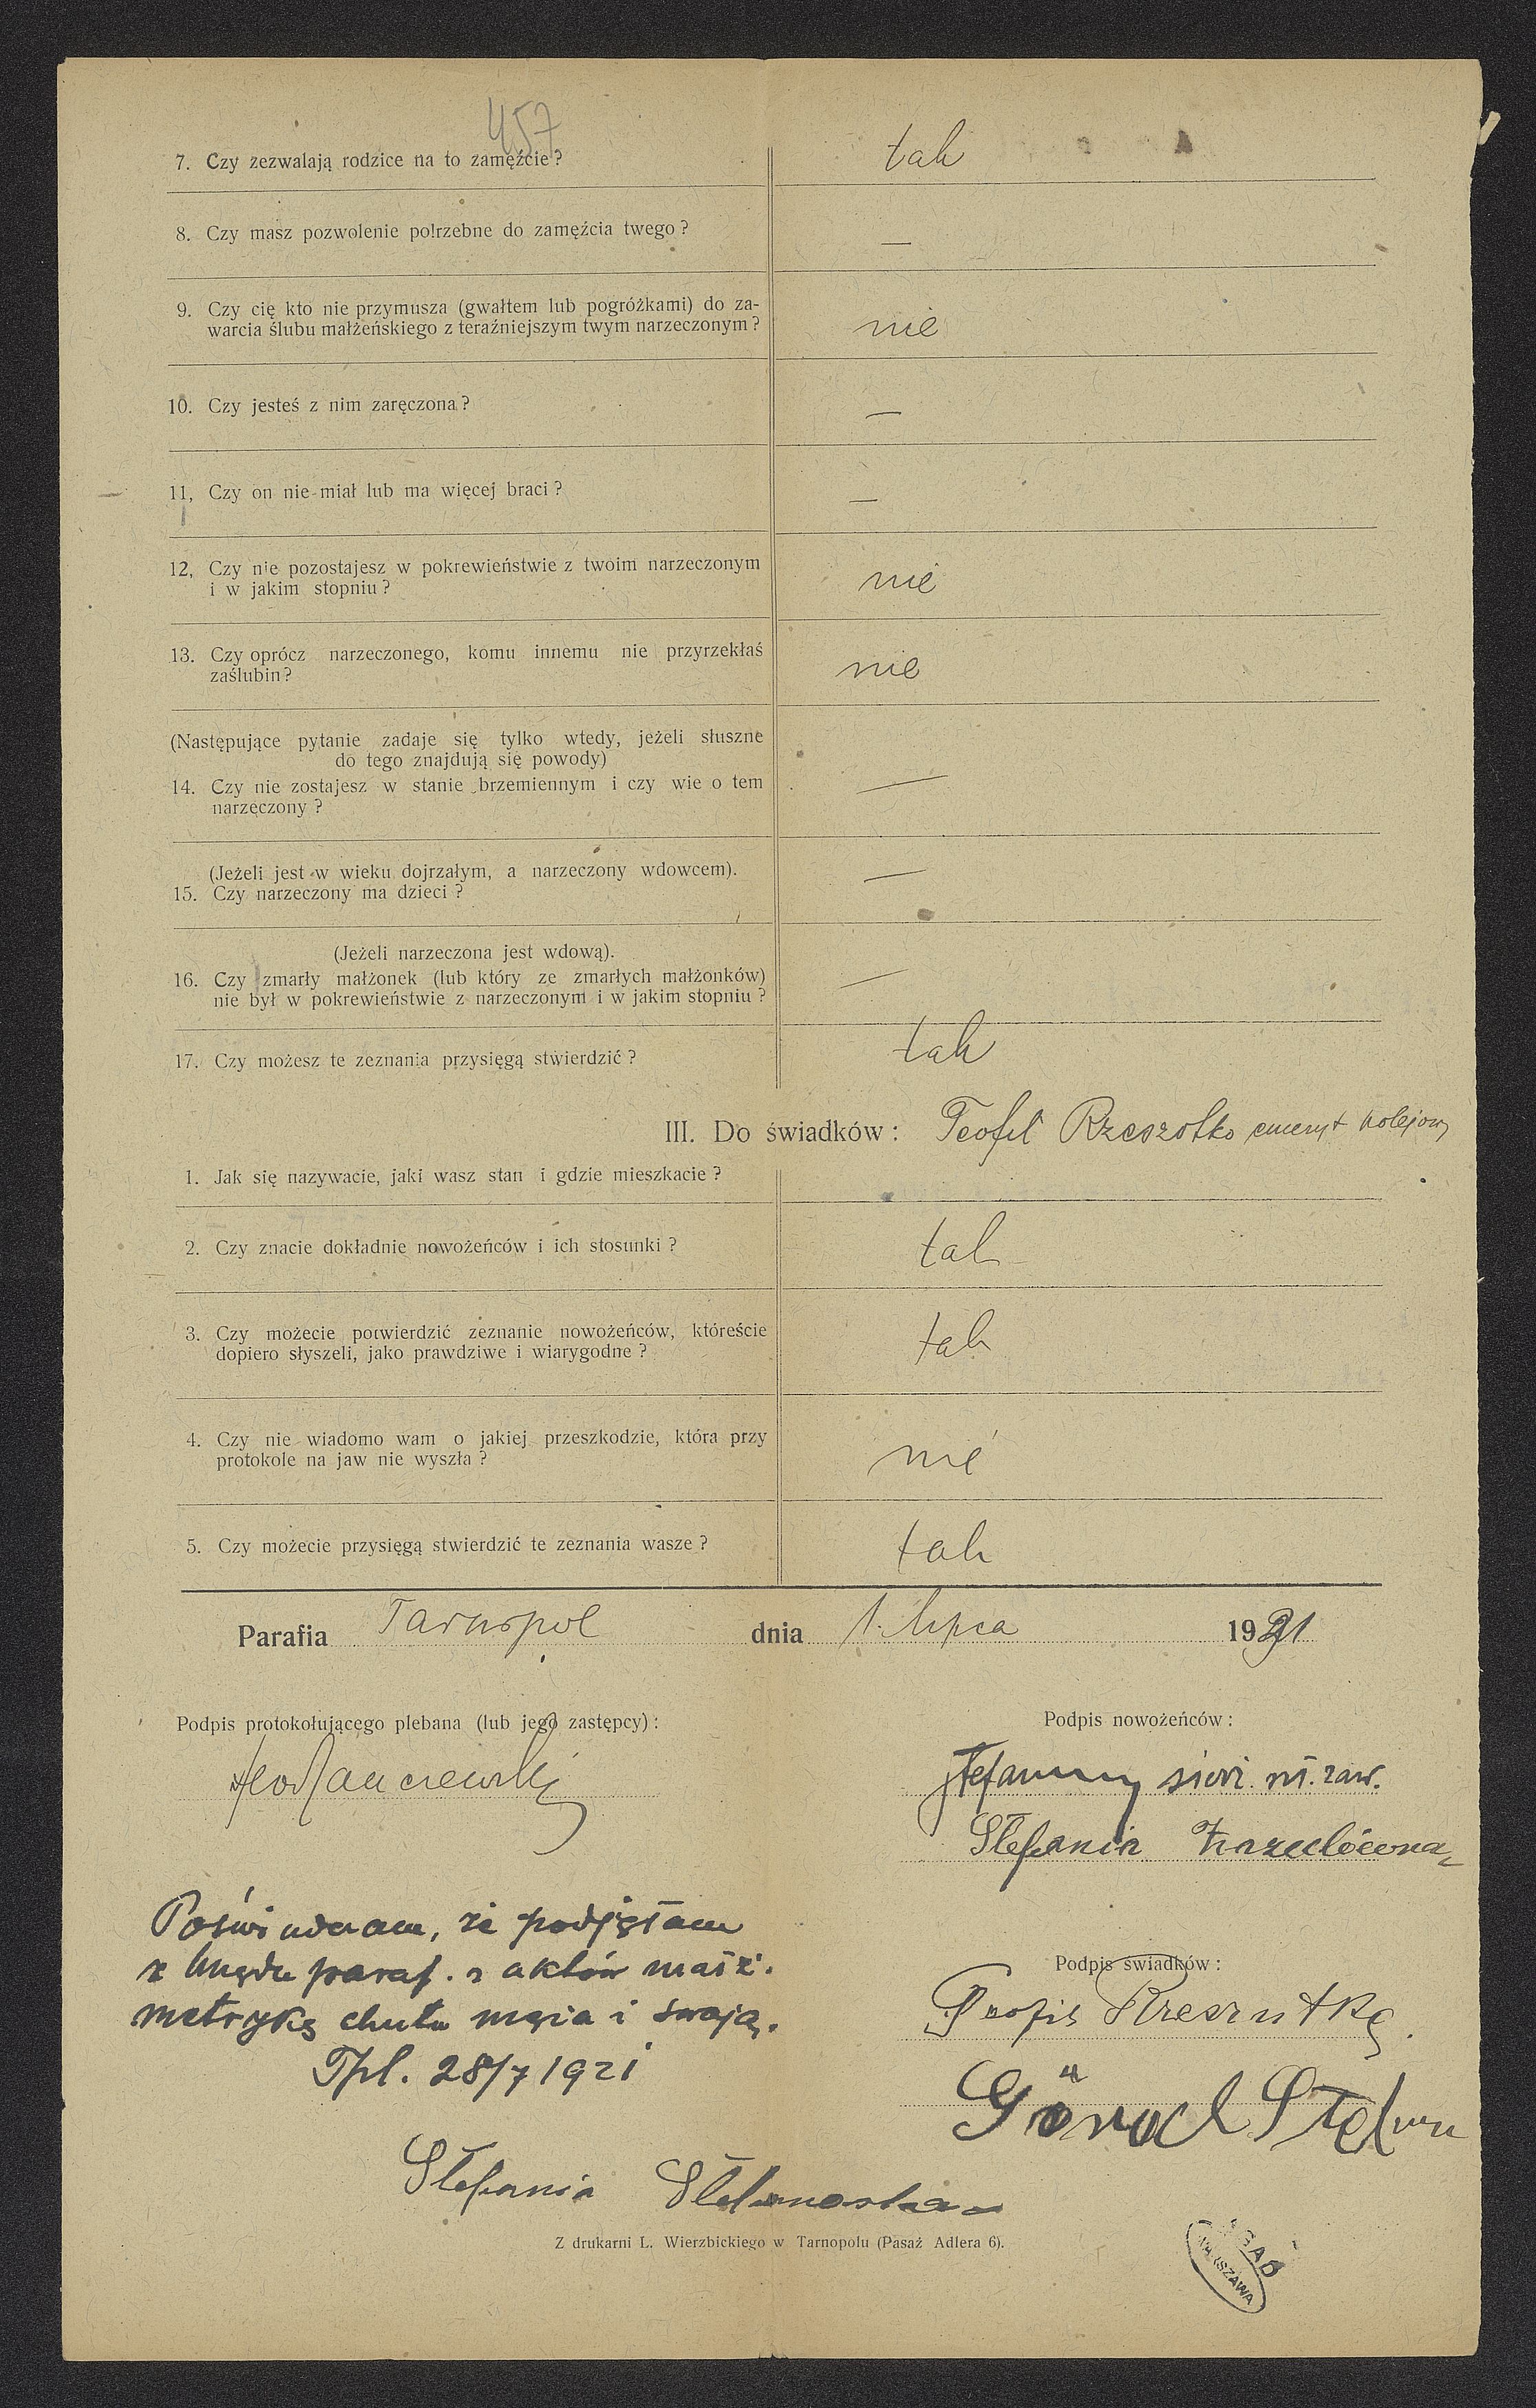 457
7. Czy zezwalają rodzice na to zamęźcie? tak
8. Czy masz pozwolenie potrzebne do zamęźcia twego? —
9. Czy cię kto nie przymusza (gwałtem lub pogróżkami) do za-
warcia ślubu małżeńskiego z teraźniejszym twym narzeczonym? nie
10. Czy jesteś z nim zaręczona? —
11, Czy on nie miał lub ma więcej braci? —
12, Czy nie pozostajesz w pokrewieństwie z twoim narzeczonym
i w jakim stopniu? nie
13. Czy oprócz narzeczonego, komu innemu nie przyrzekłaś
zaślubin? nie
(Następujące pytanie zadaje się tylko wtedy, jeżeli słuszne
do tego znajdują się powody)
14. Czy nie zostajesz w stanie brzemiennym i czy wie o tem
narzęczony? —
(Jeżeli jest w wieku dojrzałym, a narzeczony wdowcem).
15. Czy narzeczony ma dzieci? —
(Jeżeli narzeczona jest wdową).
16. Czy zmarły małżonek (lub który ze zmarłych małżonków)
nie był w pokrewieństwie z narzeczonym i w jakim stopniu? —
17. Czy możesz te zeznania przysięgą stwierdzić? tak
III. Do świadków: Teofil Rzeszotko emeryt kolejowy
1. Jak się nazywacie, jaki wasz stan i gdzie mieszkacie?
2. Czy znacie dokładnie nowożeńców i ich stosunki? tak
3. Czy możecie potwierdzić zeznanie nowożeńców, któreście
dopiero słyszeli, jako prawdziwe i wiarygodne? tak
4. Czy nie wiadomo wam o jakiej przeszkodzie, która przy
protokole na jaw nie wyszła? nie
5. Czy możecie przysięgą stwierdzić te zeznania wasze? tak
Parafia Tarnopol dnia 1. lipca 1921
Podpis protokołującego plebana (lub jego zastępcy):
Podpis nowożeńców:
zaw.
Stefania
Poświadczam, że podjęłam
z Urzędu paraf. z aktów małż.
metrykę chrztu męża i swoją.
Tpl. 28/7 1921
Podpis świadków:
Teofil Rzeszutko
Stefan
Stefania
Z drukarni L. Wierzbickiego w Tarnopolu (Pasaż Adlera 6).
AGAD
WARSZAWA